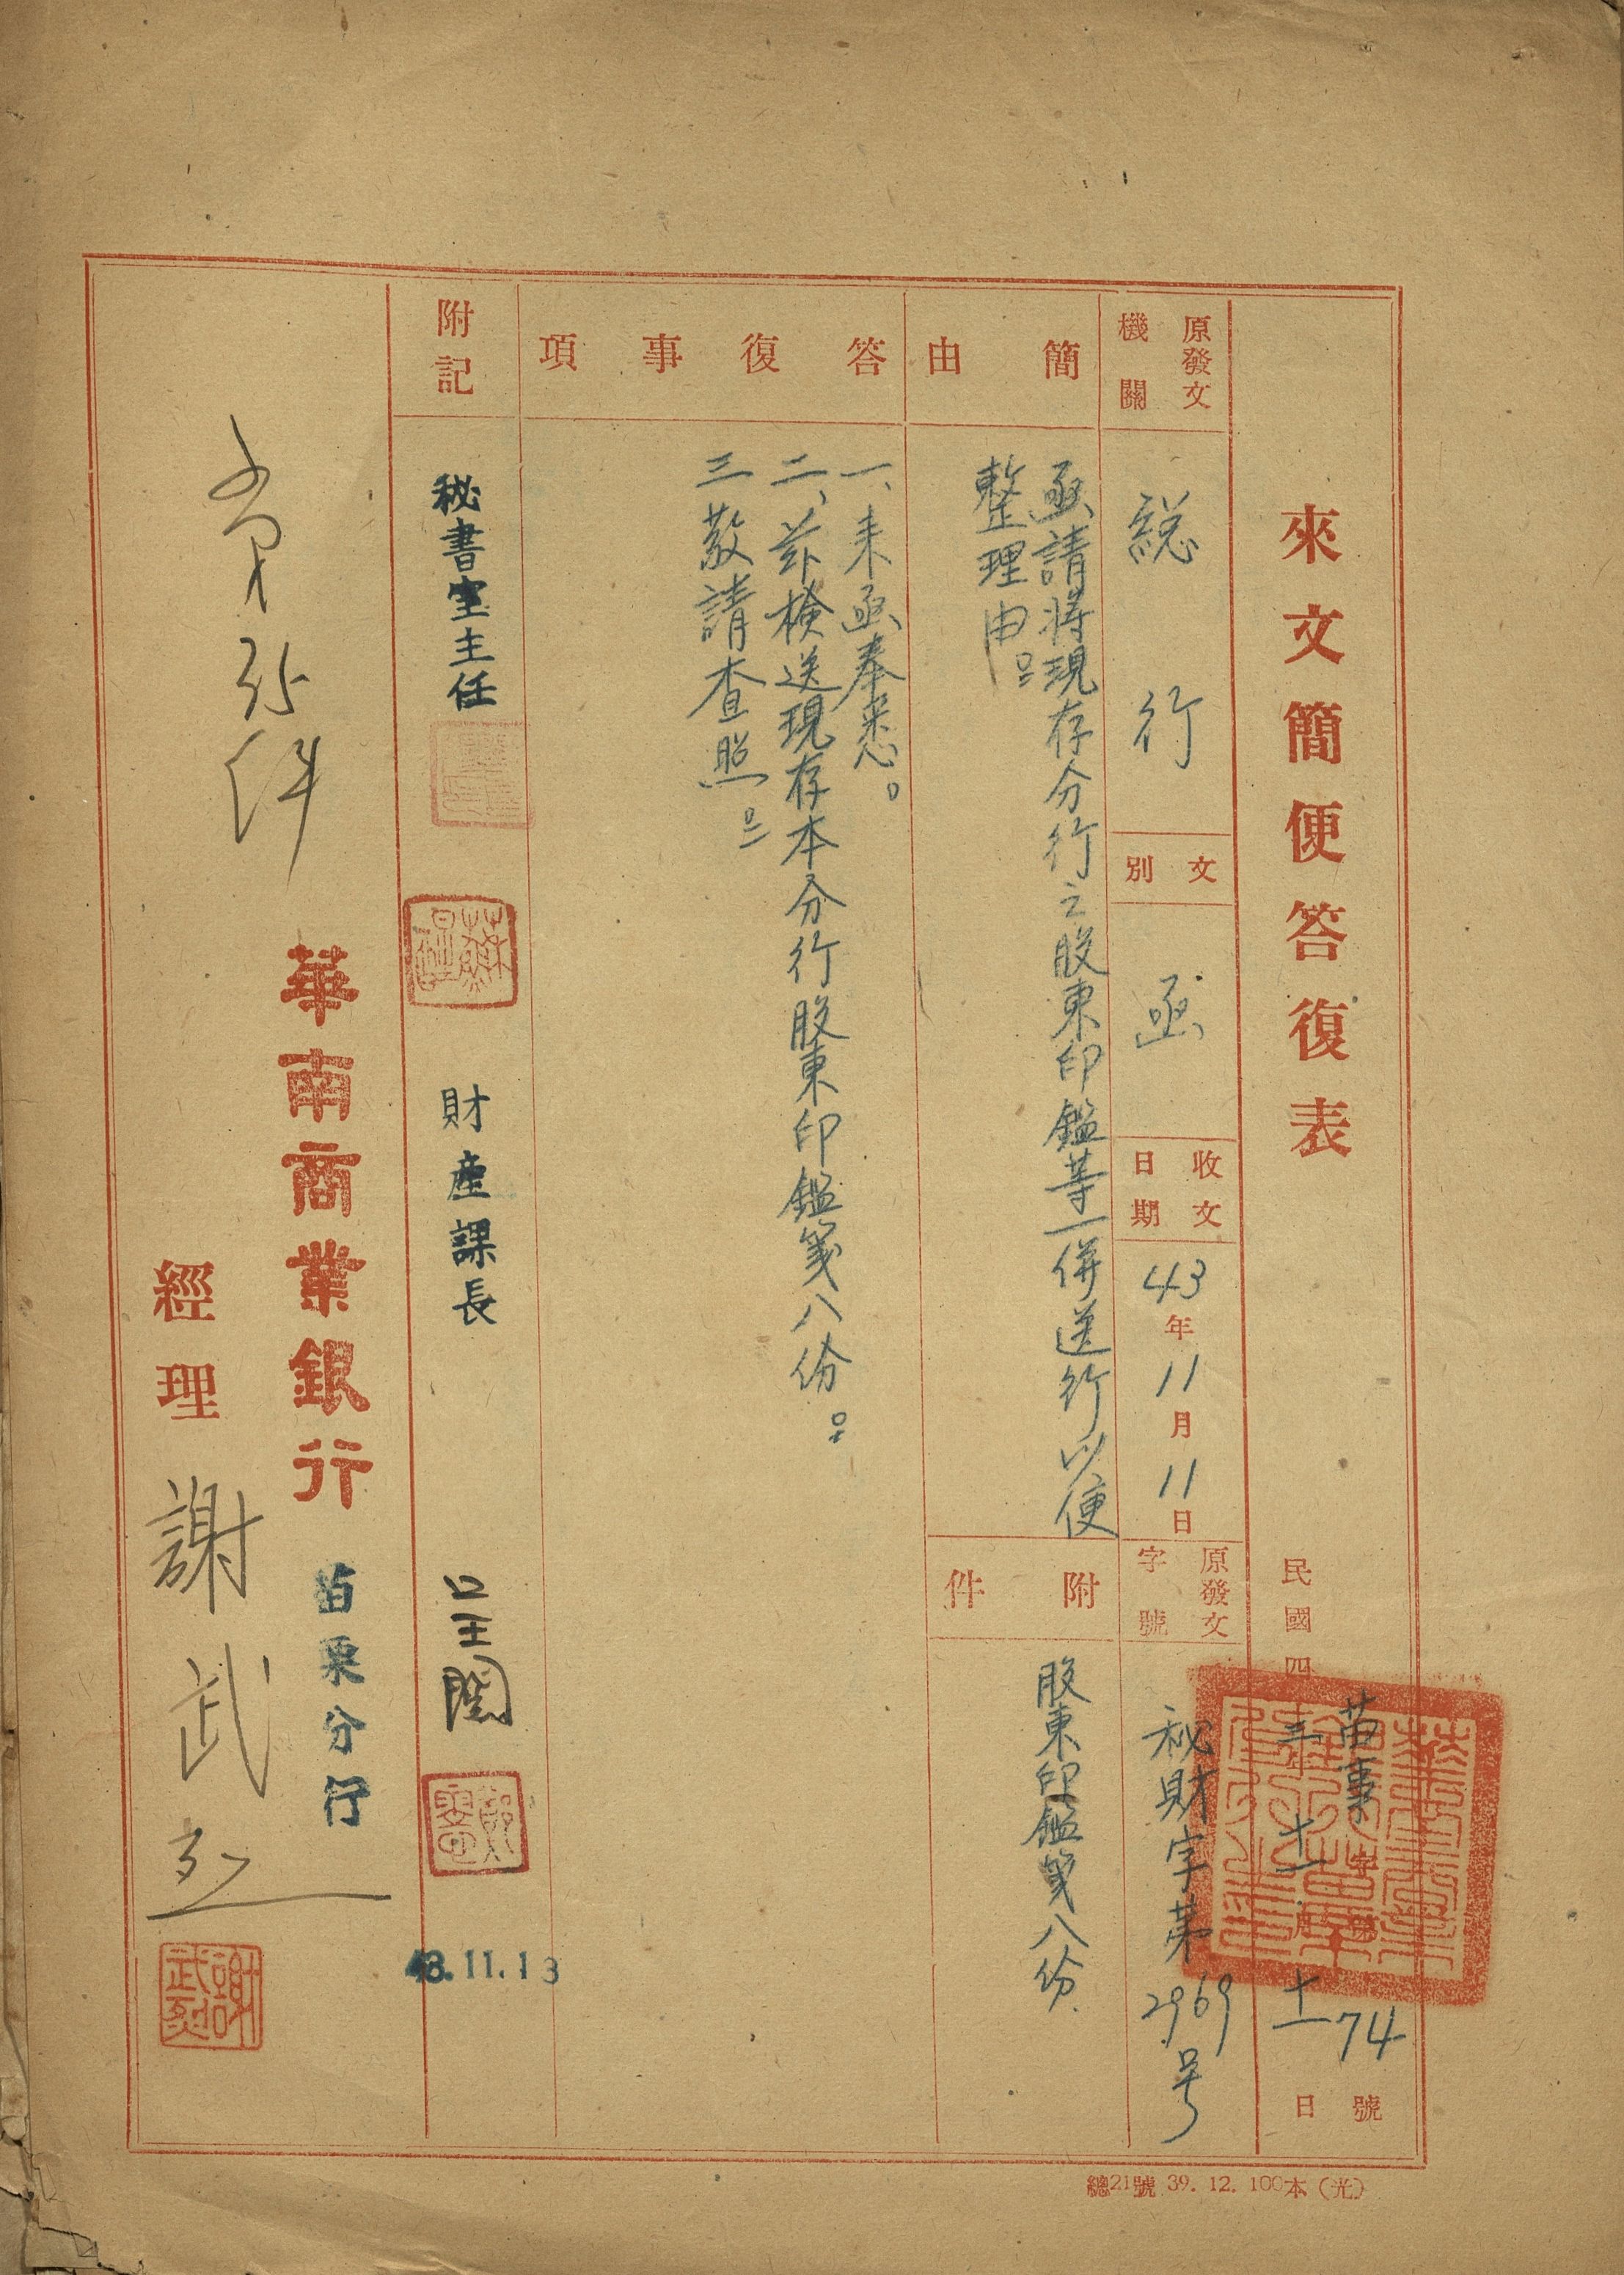 來文簡便答復表
苗業字第74號
民國四三年十一月十一日
原發文機關
総行
文別
函
收文日期
43年11月11日
原發文字號
秘財字第2969号
簡由
函請将現存分行之股東印鑑等一併送行以便
整理由
附件
股東印鑑箋八份
答復事項
一、来函奉悉。
二、茲検送現存本分行股東印鑑箋八份。
三敬請查照。
附記
秘書室主任
財產課長
呈閱
43.11.13
華南商業銀行
苗栗分行
經理
謝武烈
謝武烈
總21號 39. 12. 100本(光)